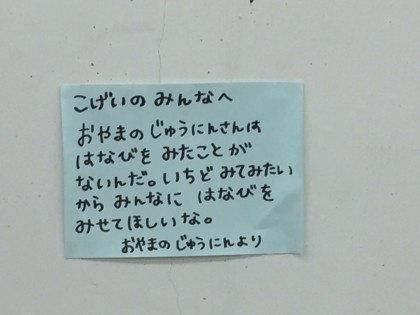 こげいの みんなへ
おやまのじゅうにんさんは
はなびを みたことが
ないんだ。いちど みてみたい
から みんなに はなびを
みせてほしいな。
おやまのじゅうにんより